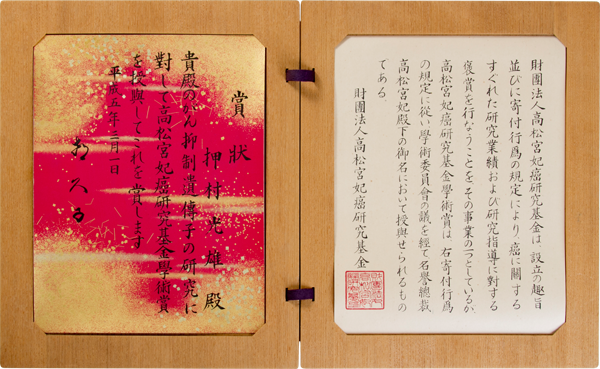 財團法人高松宮妃癌研究基金は、設立の趣旨
並びに寄付行爲の規定により、癌に關する
すぐれた研究業績および研究指導に對する
褒賞を行なうことをその事業の一つとしているが、
高松宮妃癌研究基金學術賞は、右寄付行爲
の規定に従い學術委員會の議を経て名誉總裁
高松宮妃殿下の御名において授與せられるもの
である
財團法人高松宮妃癌研究基金
賞状
押村光雄殿
貴殿のがん抑制遺傳子の研究に
對して高松宮妃癌研究基金學術賞
を授與してこれを賞します
平成五年三月一日